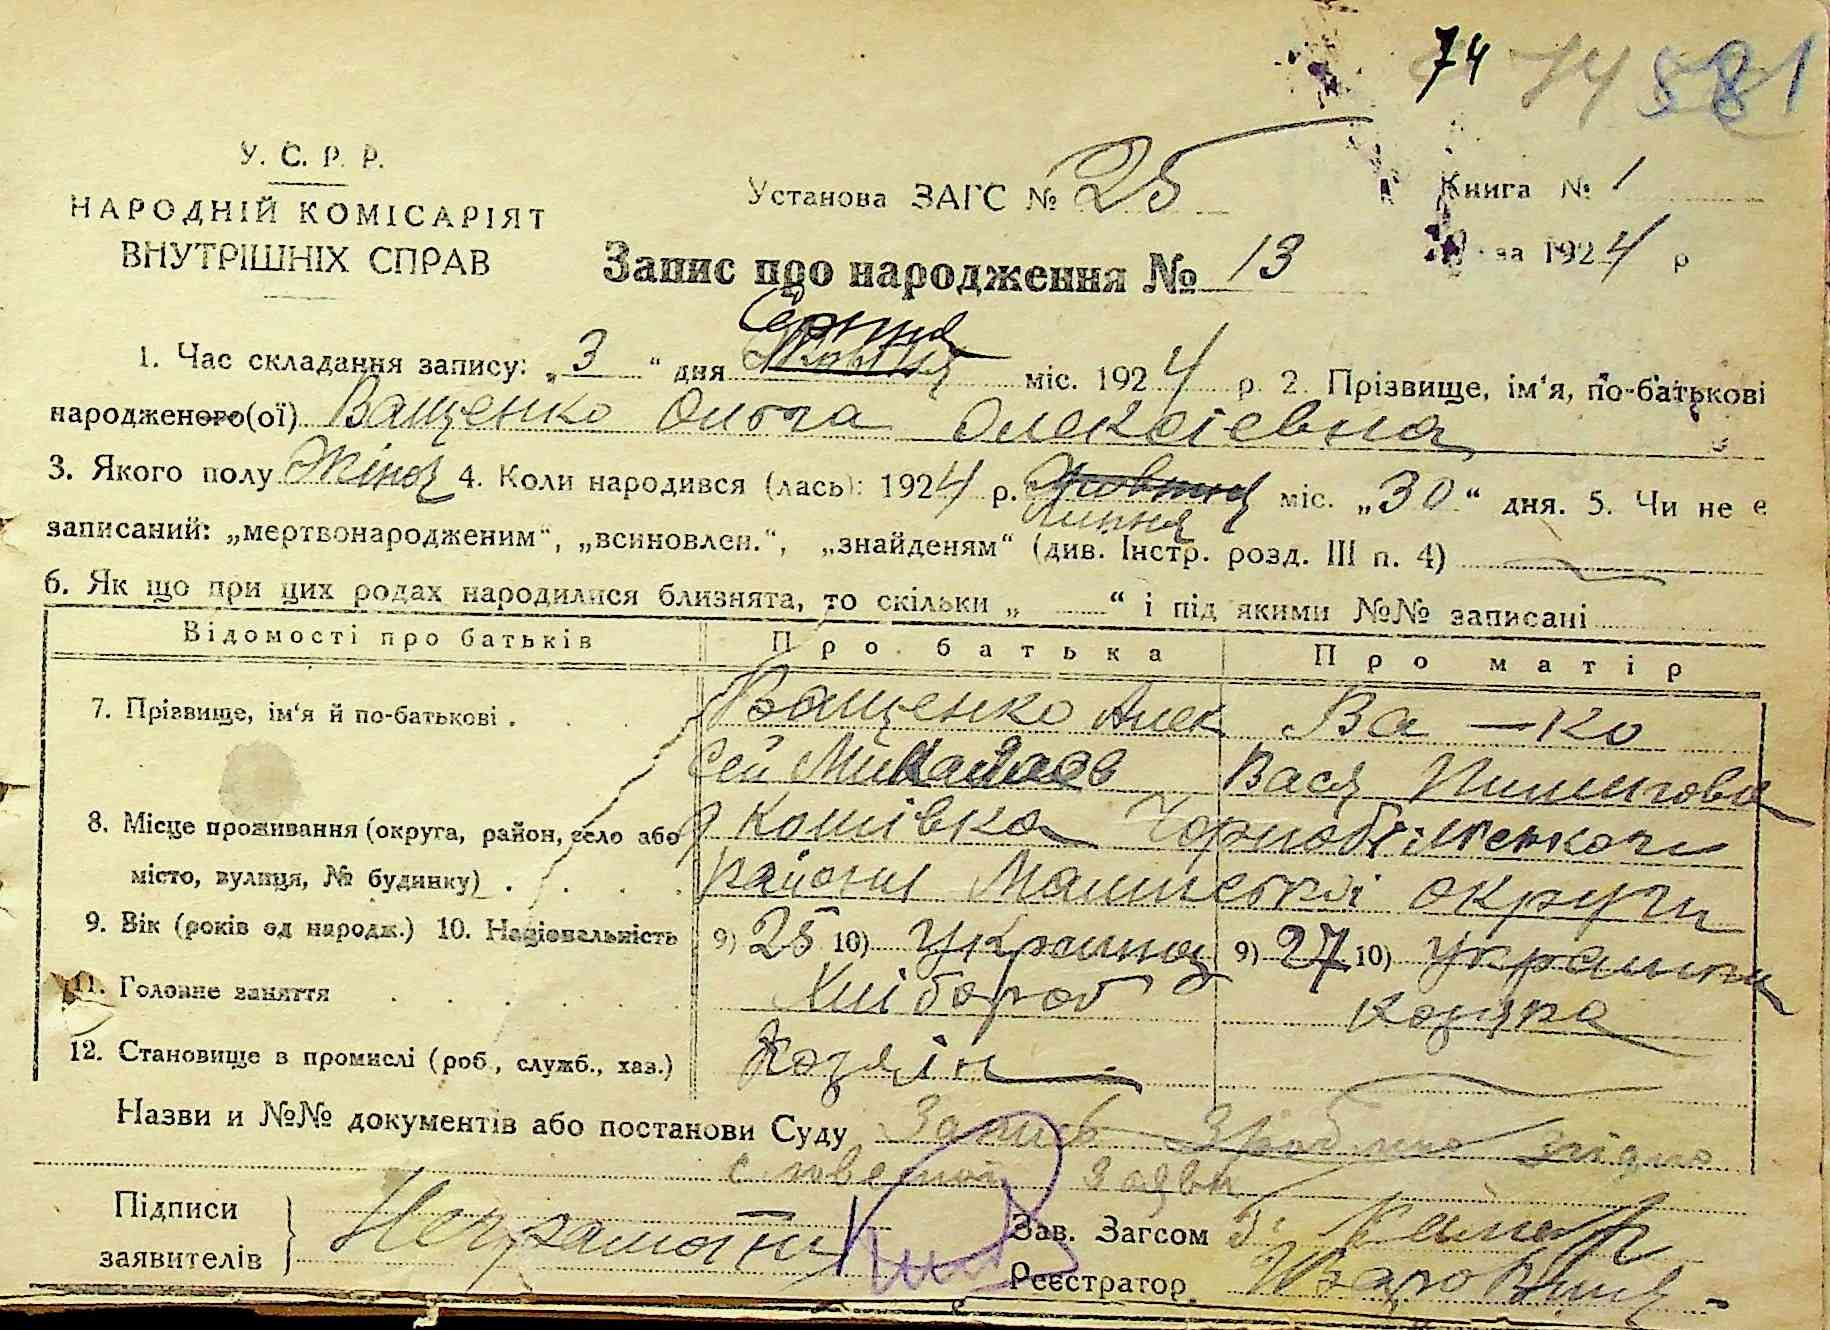 74 74 581
У. С. Р. Р.
НАРОДНІЙ КОМІСАРІЯТ
ВНУТРІШНІХ СПРАВ
Установа ЗАГС № 25
Книга № 1
Запис про народження № 13
за 1924 р
Серпня
1. Час складання запису: „3“ дня Жовтня міс. 1924 р. 2. Прізвище, ім‘я, по-батькові
народженого(ої) Ващенко Ольга Олексіевна
3. Якого полу Жіноч 4. Коли народився (лась): 1924 р. Жовтня міс. „30“ дня. 5. Чи не є
Липня
записаний: „мертвонародженим“, „всиновлен.“, „знайденям“ (див. Інстр. розд. III п. 4)
6. Як що при цих родах народилися близнята, то скільки „ “ і під якими №№ записані
Відомості про батьків Про батька Про матір
7. Прізвище, ім‘я й по-батькові . Ващенко Алек Ва — ко
сей Миколаєв Вася
8. Місце проживання (округа, район, село або Кошівка
місто, вулиця, № будинку) . района округи
9. Вік (років од народж.) 10. Національність 9) 25 10) Украинец 9) 27 10) Украинка
11. Головне заняття Хлібороб
12. Становище в промислі (роб., служб., хаз.) Хозяін
Назви и №№ документів або постанови Суду Запись Зроблено згідно
словесной заяви
Підписи
заявителів Неграмотни
Зав. Загсом
Реєстратор